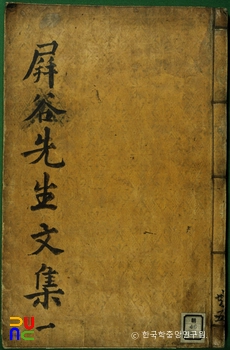 屛谷先生文集 一
共五
© 한국학중앙연구원